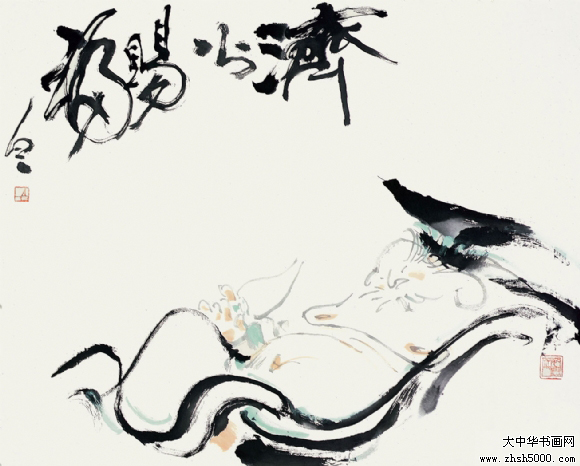 濟公賜福
大中华书画网
www.zhsh5000.com